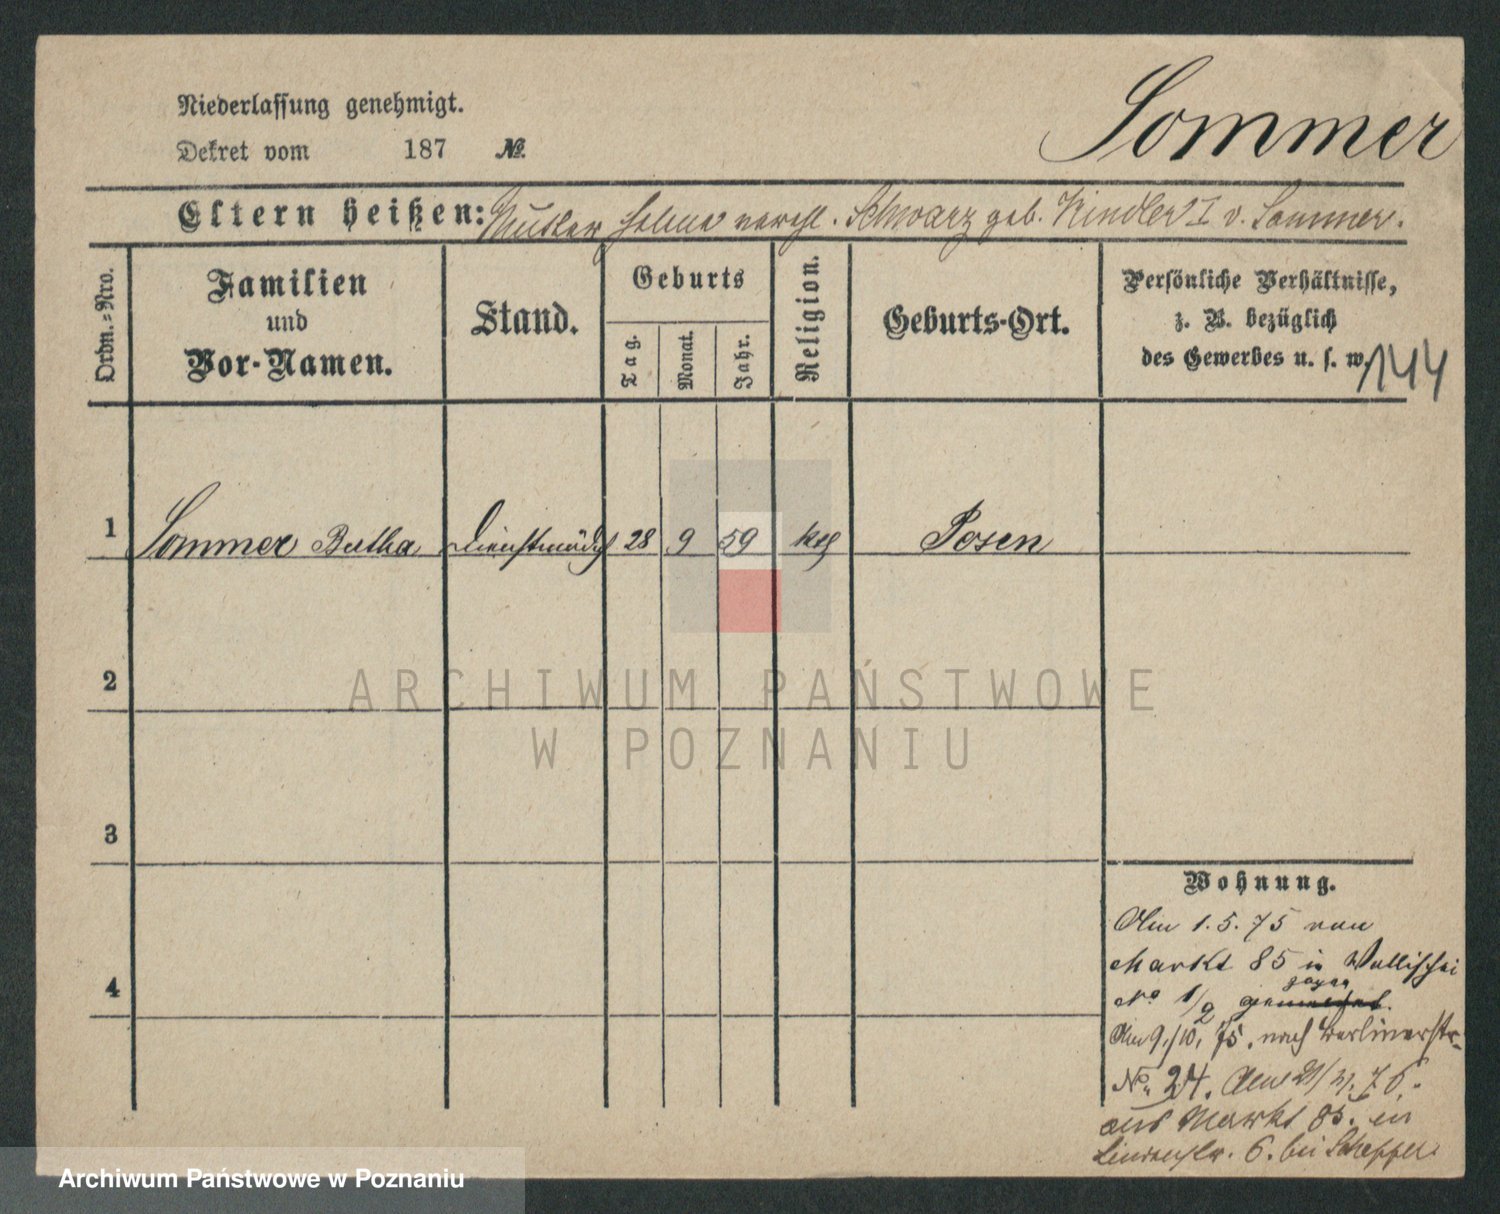 Niederlassung genehmigt.
Dekret vom 187 No.
Sommer
Eltern heißen: Mutter verehl. Schwarz geb. Kindler I v. Sommer.
Ordn.-Nro.
Familien
und
Vor-Namen.
Stand.
Geburts
Tag.
Monat.
Jahr.
Religion.
Geburts-Ort.
Persönliche Verhältnisse,
z. B. bezüglich
des Gewerbes u. s. w.
144
1 Sommer Bertha Dienstmädch 28 9 59 Posen
2
3
4
ARCHIWUM PAŃSTWOWE
W POZNANIU
Wohnung.
Am 1.5.75 von
Markt 85 in Wallischei
No 1/2 gezogen
Am 9./10. 75. nach Berlinerstr.
No. 24. Am 21/ 76.
aus Markt 85. in
6. bei
Archiwum Państwowe w Poznaniu